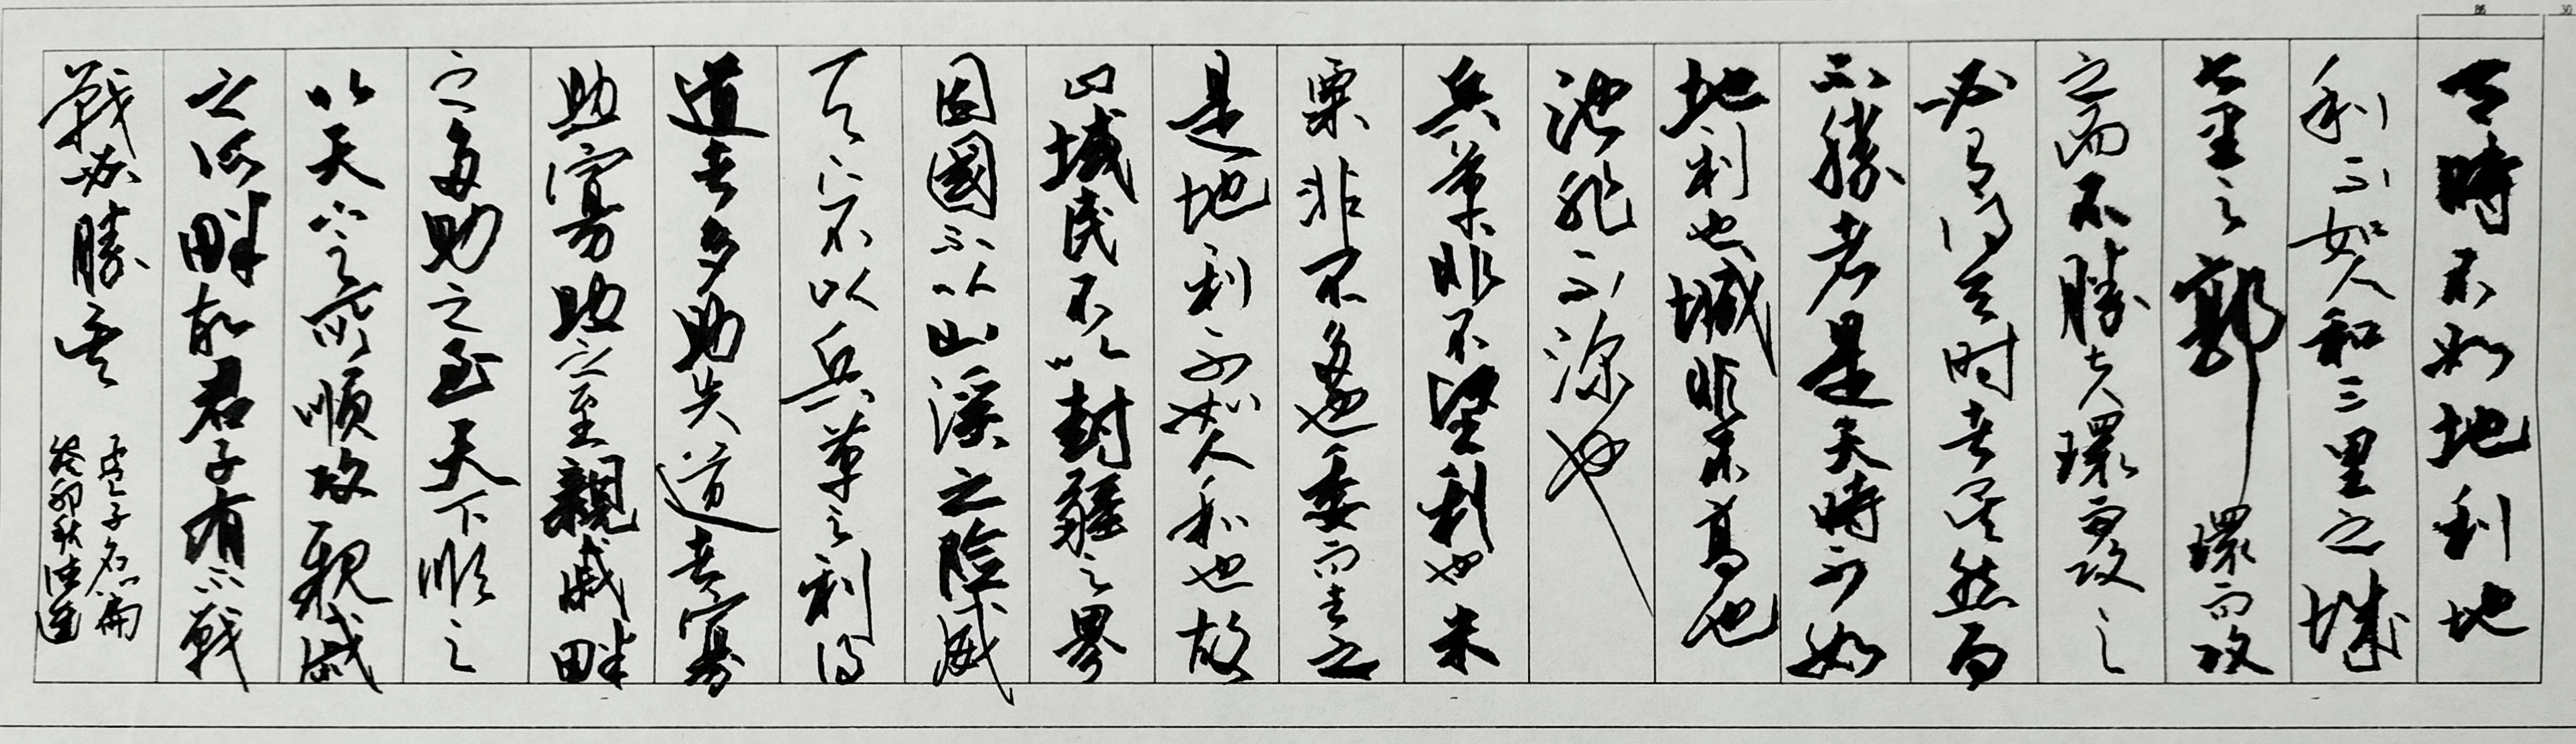 天時不如地利地
利不如人和三里之城
七里之郭環而攻
之而不勝夫環而攻之
必有得天时者矣然而
不勝者是天時不如
地利也城非不高也
池非不深也
兵革非不坚利也米
粟非不多也委而去之
是地利不如人和也故
曰域民不以封疆之界
固國不以山溪之險威
天下不以兵革之利得
道者多助失道者寡
助寡助之至親戚畔
之多助之至天下順之
以天下之所順攻親戚
之所畔故君子有不戰
戰必勝矣
孟子名篇
癸卯秋